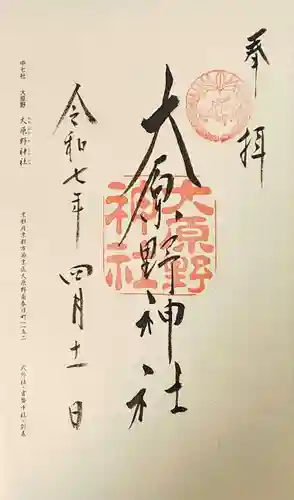 奉拝
大原野神社
大原野
神社
令和七年 四月十一日
中七社 大原野 大原野神社
京都府京都市西京区大原野南春日町一一五二
式外社・官幣中社・別表